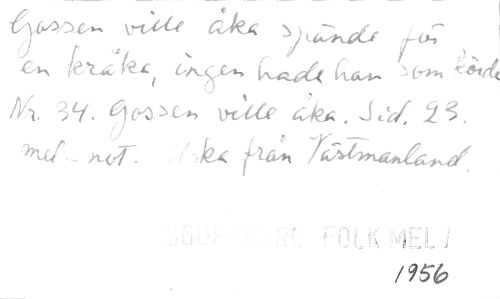 Gossen ville åka spände för
en kråka, ingen hade han som körde
Nr. 34. Gossen ville åka. Sid. 23.
mel-not. från Västmanland.
FOLK MEL
1956